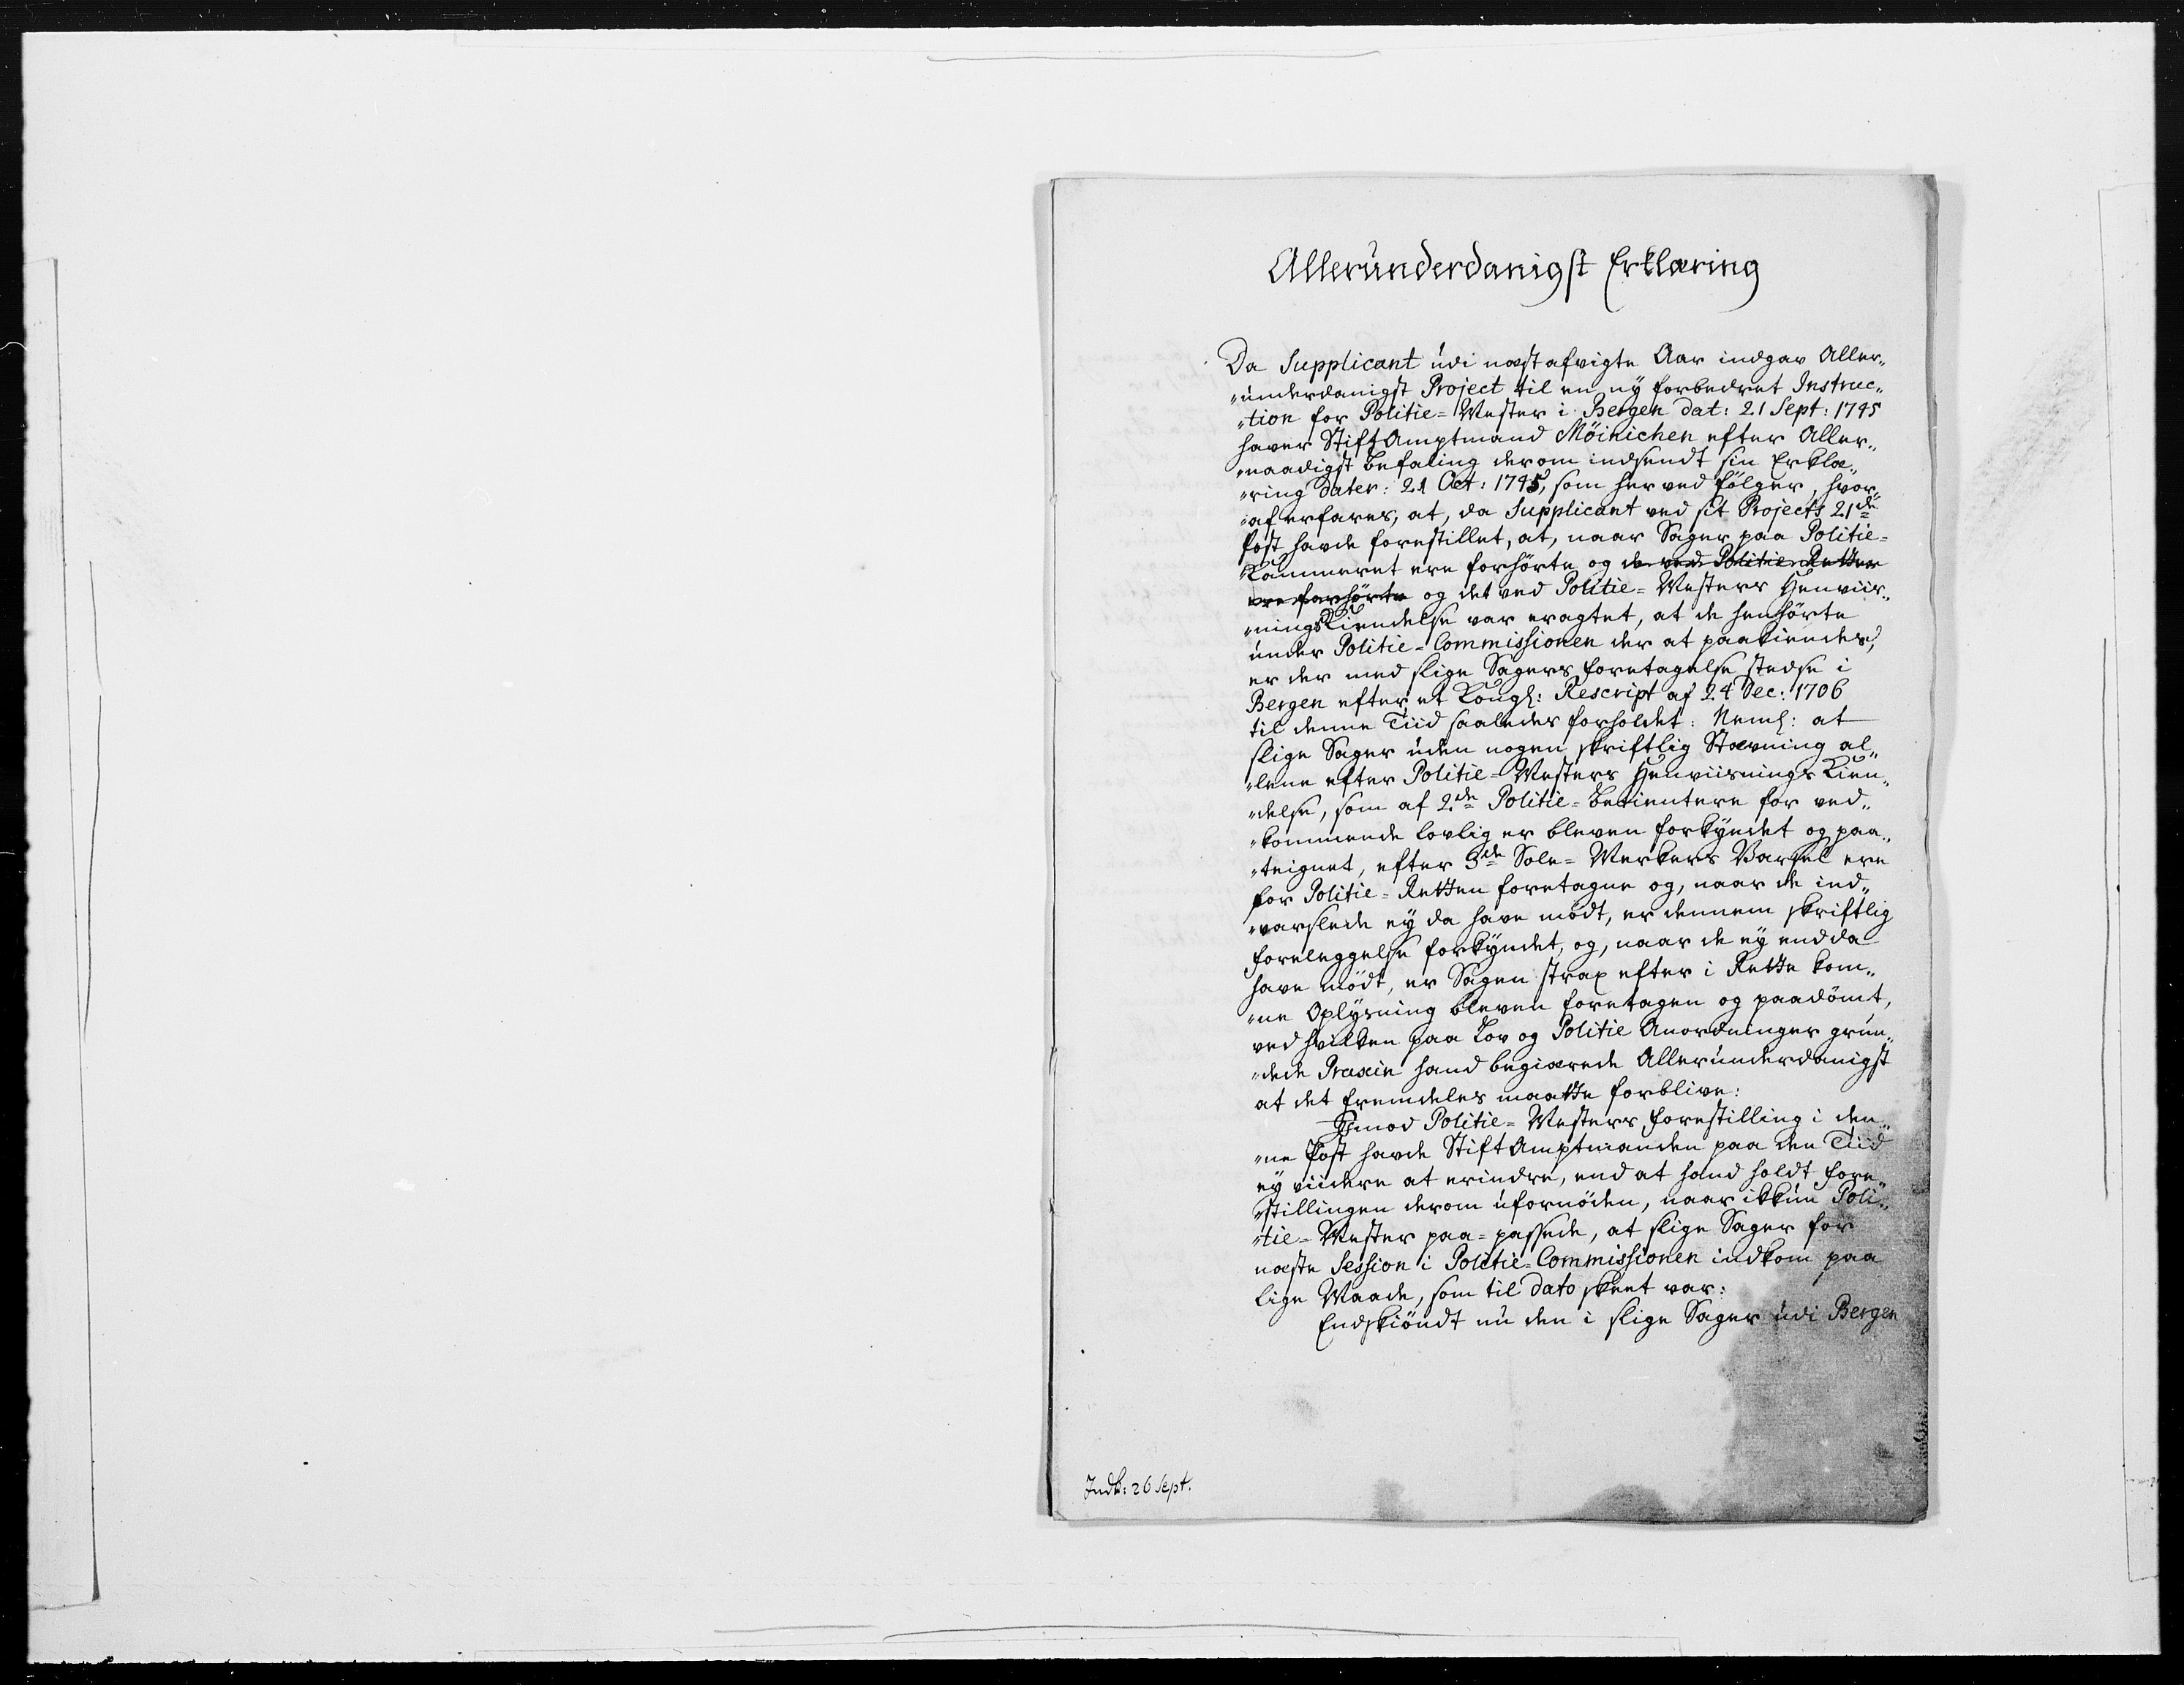 Allerunderdanigst Erklæring
Da Supplicant udi næst afvigte Aar indgav Aller„
„underdanigst Project til en ny forbedret Instruc„
„tion for Politie=Mester i Bergen dat: 21 Sept: 1745
haver StiftAmptmand Möinichen efter Aller„
„naadigst befaling derom indsendt sin Erklæ„
„ring dater: 21 Oct: 1745, som herved fölger, hvor„
„af erfares, at, da Supplicant ved sit Projects 21de
Post havde forestillet, at, naar Sager paa Politie=
Kammeret ere forhörte og de ved Politie Retten
ere forhörte og det ved Politie=Mesters Henviis„
„ningsKiendelse var eragtet, at de henhörte
under Politie=Commissionen der at paakiendes,
er der med slige Sagers foretagelse stedse i
Bergen efter et Kongl: Rescript af 24 Dec: 1706
til denne Tiid saaledes forholdet: Neml: at
slige Sager uden nogen skriftlig Stævning al„
„lene efter Politie=Mesters Henviisnings Kien„
„delse, som af 2de Politie=betientere for ved„
„kommende lovlig er bleven forkyndet og paa„
„teignet, efter 3de Sole=Merkers Varsel ere
for Politie=Retten foretagne og, naar de ind„
„varslede ey da have mödt, er dennem skriftlig
foreleggelse forkyndet, og, naar de ey endda
have mödt, er Sagen strax efter i Rette kom„
„ne Oplysning bleven foretagen og paadömt,
ved hvilken paa Lov og Politie Anordninger grun„
„dede Praxin hand begiærede Allerunderdanigst
at det fremdeles maatte forblive:
Jmod Politie=Mesters forestilling i den„
„ne Post havde StiftAmptmanden paa den Tiid
ey viidere at erindre, end at hand holdt fore„
„stillingen derom ufornöden, naar ikkun Poli„
„tie=Mester paa=passede, at slige Sager for
næste Session i Politie=Commissionen indkom paa
lige Maade, som til dato skeet var:
Endskiöndt nu den i slige Sager udi Bergen
Indk: 26 Sept.